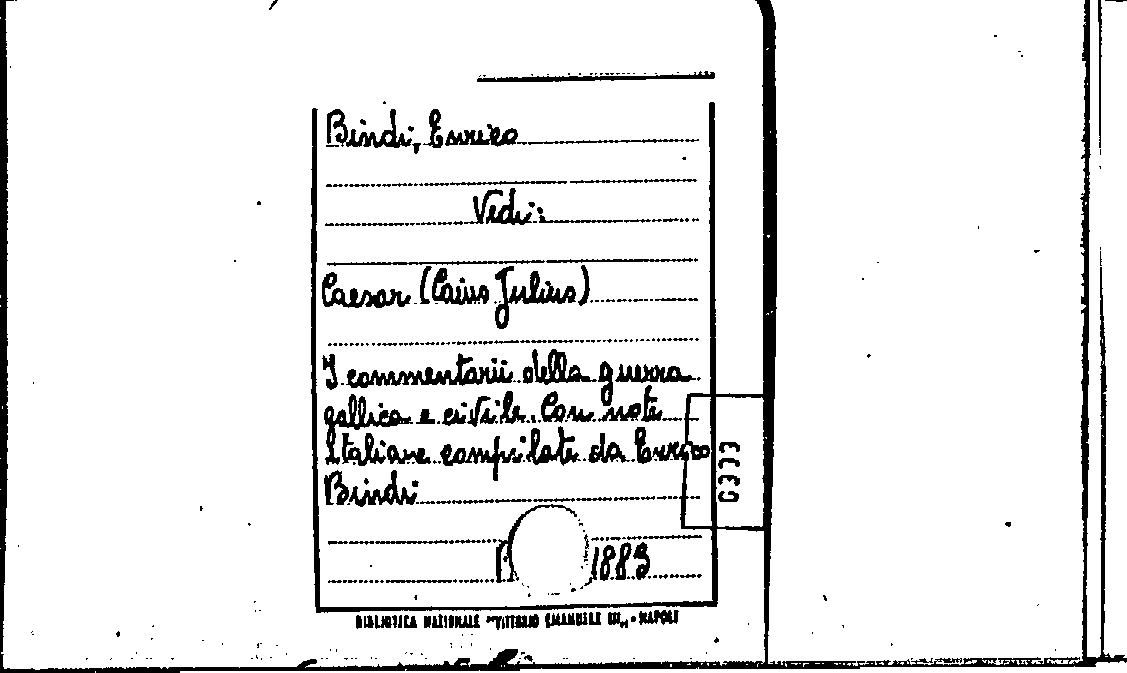 Bindi, Enrico
Vedi:
Caesar (Caius Julius)
I commentarii della guerra
gallica e civile. Con note
Italiane compilate da Enrico
Bindi
1883
BIBLIOTECA NAZIONALE "VITTORIO EMANUELE III" - NAPOLI